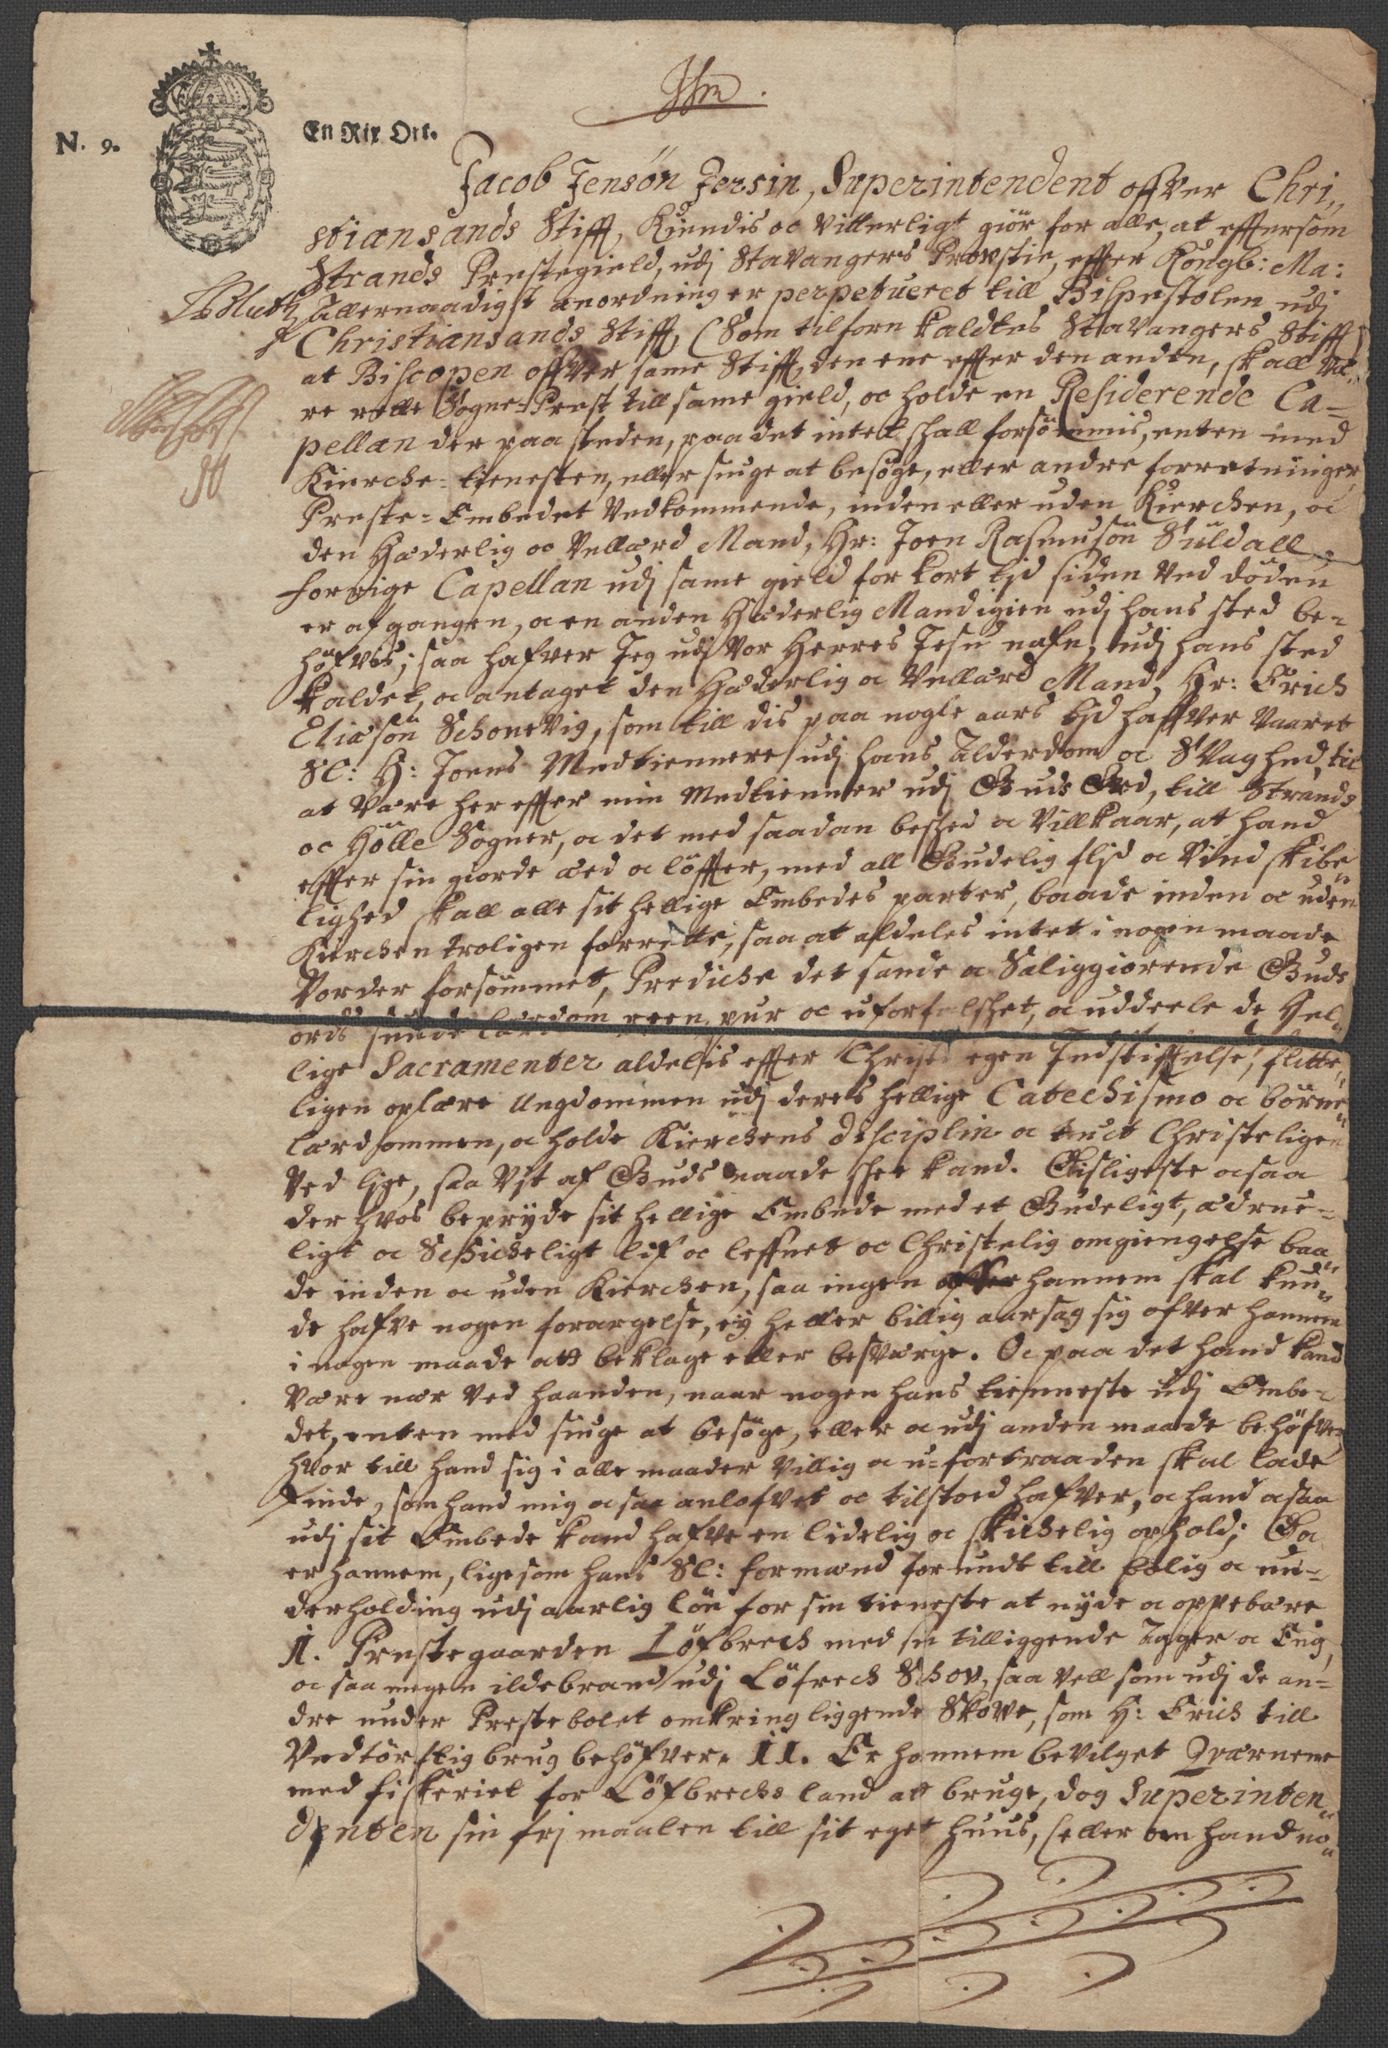 N. 9.
En Rix Ort.
Jacob Jensøn Jersin, Superintendent offver Chri„
stiansands Stift, Kiendis oc Vitterligt giør for alle, at effersom
Strands Prestegield, udj Stavangers Provstie, effer Kongl: Ma:
Allernaadigst anordning er perpetueret till Bispestolen udj
Christiansands Stift, (Som tilforn kaldtes Stavangers Stift)
at Biscopen offver same Stift, den ene effer den anden, skall væ„
re rette Sogne-Prest till same gield, oc holde en Residerende Ca=
pellan der paa steden, paa det intet skall forsømmis, enten med
Kierche-tienesten, eller siuge at besøge, eller andre forretninger,
Preste-Embedet Vedkommende, inden eller uden Kierchen, oc
den Hæderlig oc Vellærd Mand, Hr: Joen Rasmusøn Suldall,
forrige Capellan udj same gield for kort tjd siden Ved døden
er afgangen, oc en anden Hæderlig Mand igien udj hans sted be=
høfves; saa hafver Jeg udj Vor Herres Jesu nafn, udj hans sted
kaldet, oc antaget den Hæderlig oc Vellærd Mand, Hr: Erich
Eliæsøn Schonevig, som till dis paa nogle aars tjd haffver Vaaret
Sl: H: Joens Medtiennere udj hans Alderdom oc Svaghed, til
at Være her effer min Medtienner udj Guds Ord, till Strands
oc Hölle Sogner, oc det med saadan besked oc Villkaar, at hand
effer sin giorde æed oc løffter, med all Gudelig fljd oc Vindskibe„
lighed skall alle sit hellige Embedes parter, baade inden oc uden
Kierchen troligen forrette, saa at aldeles intet i nogen maade
Vorder forsømmet, Prediche det sande oc Saliggiørende Guds
ords sunde lærdom reen, pur oc uforfalsket, oc uddeele de Hel„
lige Sacramenter aldelis effer Christi egen Indstiftelse, flitte„
ligen oplære Ungdommen udj deres hellige Catechismo oc børne„
lærdommen, oc holde Kierchens disciplin oc tuct Christeligen
Ved lige, saa Vjt af Guds naade skee kand. Disligeste ocsaa
der hvos bepryde sit hellige Embede med et Gudeligt, ædrue=
ligt oc Schickeligt lif oc leffnet oc Christelig omgiengelse baa„
de inden oc uden Kierchen, saa ingen hannem skal kun„
de hafve nogen forargelse, ej heller billig aarsag sig ofver hannem
i nogen maade att beklage eller besværge. Oc paa det hand kand
Være nær Ved haanden, naar nogen hans tienneste udj Embe=
det, enten med siuge at besøge, eller oc udj anden maade behøfver,
hvor till hand sig i alle maader Villig oc u=fortraaden skal lade
finde, som hand mig ocsaa anlofvet oc tilstoed hafver, oc hand ocsaa
udj sit Embede kand hafve en lidelig oc skickelig ophold; Da
er hannem, ligesom hans Sl: formænd forundt till bolig oc un=
derholding udj aarlig løn for sin tieneste at nyde oc oppebære
I. Prestegaarden Løfbrech med sin tilliggende Agger oc Eng,
oc saa megen ildebrand udj Løfrech Schov, saa vell som udj de an=
dre under Prestebolet omkring liggende Skove, som H: Erich till
Vedtørftig brug behøfver. II. Er hannem bevilget Qværnene
med fiskeriet for Løfbrechs land att bruge, dog Superinten„
denten sin frj maalen till sit eget huus, (eller om hand no„